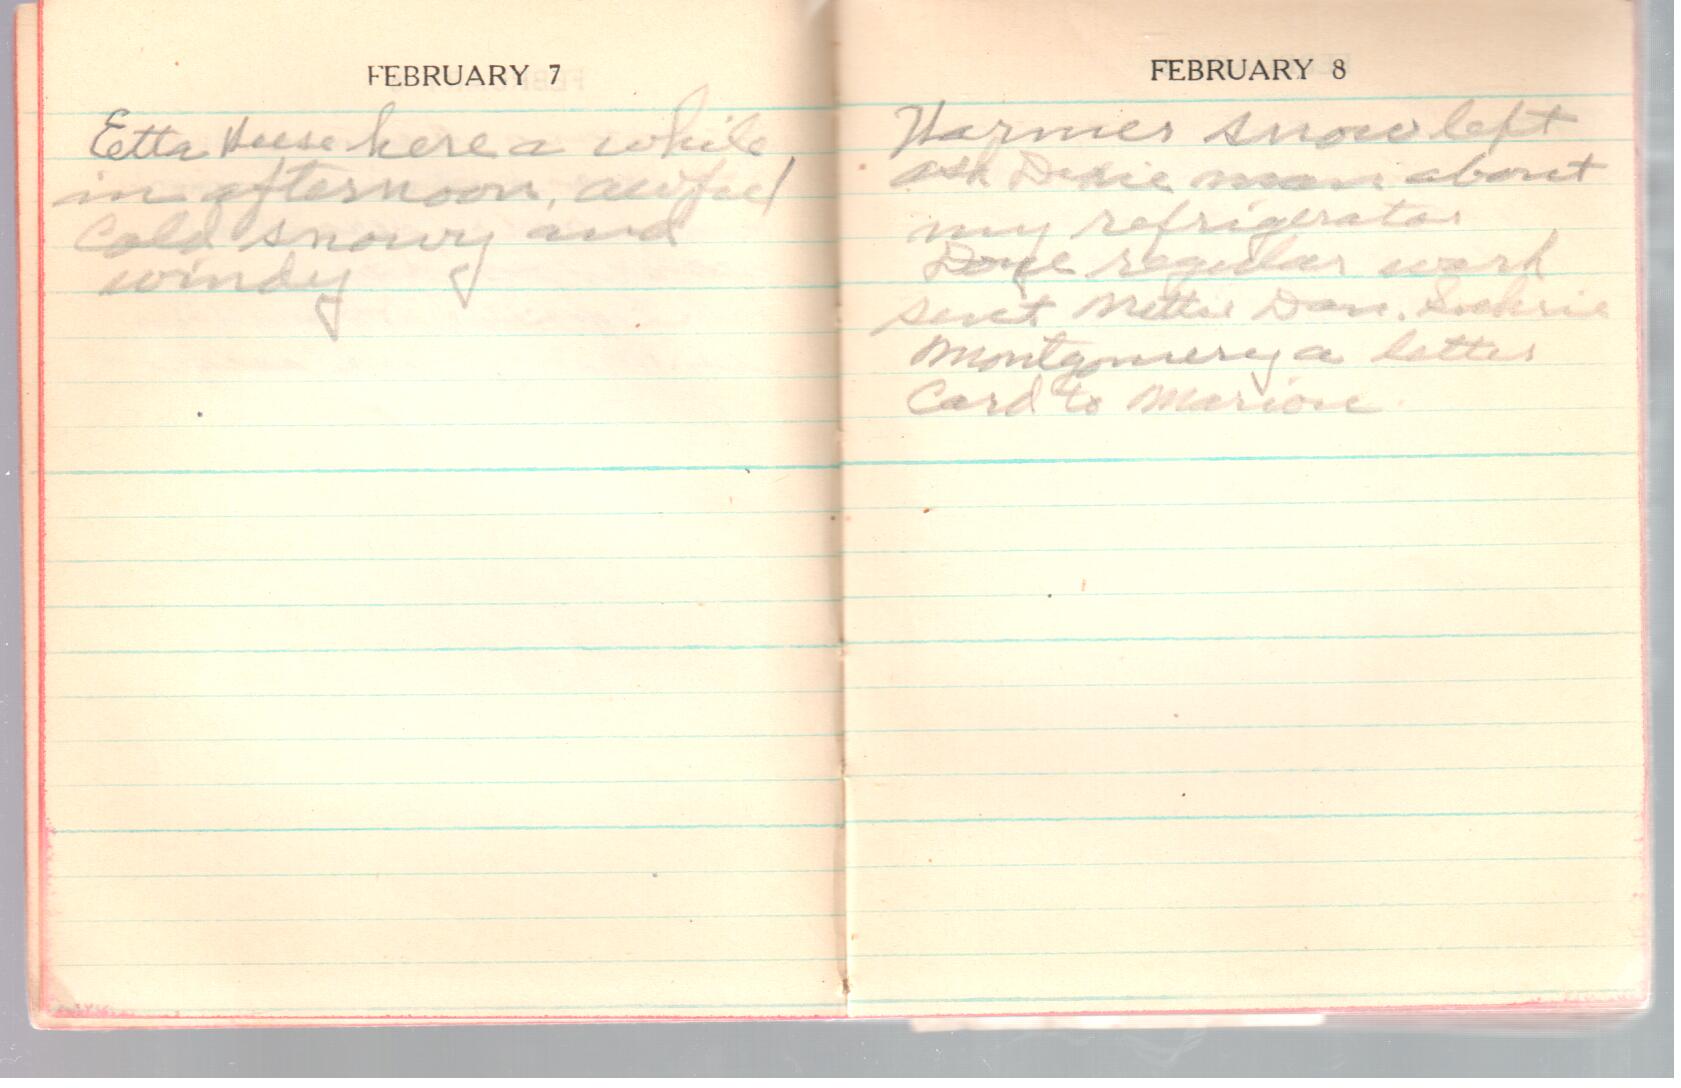 FEBRUARY 7
Etta Heese here a while
in afternoon, awful
Cold snowy and
windy
FEBRUARY 8
Warmer snow left
ask Dixie man about
my refrigerator
Done regular work
sent Nettie Dan.
Montgomery a letter
Card to Marion